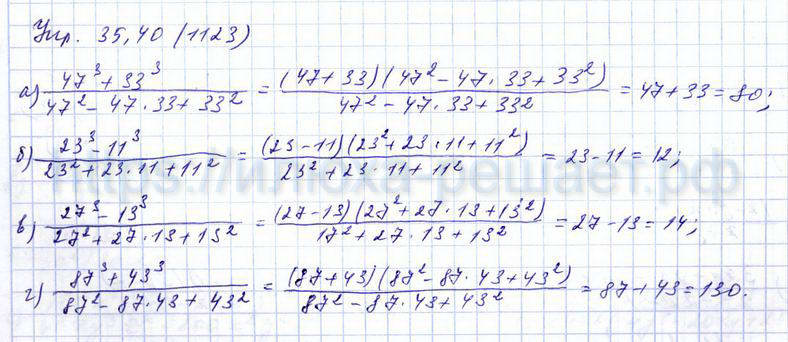 Упр. 35,40 (1123)
а) (47³ + 33³)/(47² - 47 · 33 + 33²) = ((47 + 33)(47² - 47 · 33 + 33²))/(47² - 47 · 33 + 332) = 47 + 33 = 80;
б) (23³ - 11³)/(23² + 23 · 11 + 11²) = ((23 - 11)(23² + 23 · 11 + 11²))/(23² + 23 · 11 + 11²) = 23 - 11 = 12;
https://илюха-решает.рф
в) (27³ - 13³)/(27² + 27 · 13 + 13²) = ((27 - 13)(27² + 27 · 13 + 13²))/(17² + 27 · 13 + 13²) = 27 - 13 = 14;
г) (87³ + 43³)/(87² - 87 · 43 + 43²) = ((87 + 43)(87² - 87 · 43 + 43²))/(87² - 87 · 43 + 43²) = 87 + 43 = 130.